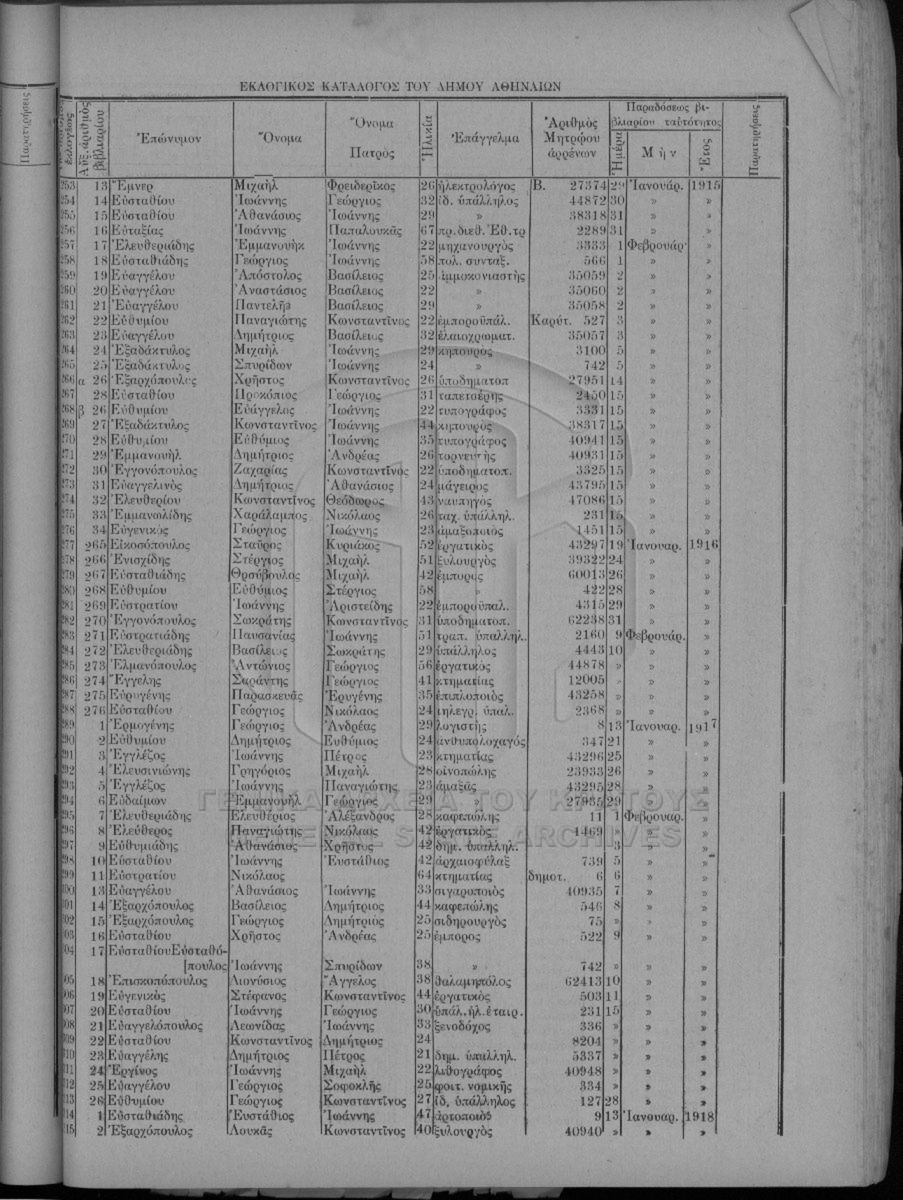 ΕΚΛΟΓΙΚΟΣ ΚΑΤΑΛΟΓΟΣ ΤΟΥ ΔΗΜΟΥ ΑΘΗΝΑΙΩΝ
Αὔξ. ἀριθμὸς βιβλιαρίου Ἐπώνυμον Ὄνομα Ὄνομα Πατρὸς Ἡλικία Ἐπάγγελμα Ἀριθμὸς Μητρῴου ἀρρένων Παραδόσεως βιβλιαρίου ταὐτότητος Ἡμέρα Μὴν Ἔτος Παρατηρήσεις
253 13 Ἔμνερ Μιχαὴλ Φρειδερῖκος 26 ἠλεκτρολόγος Β. 27374 29 Ἰανουάρ. 1915
254 14 Εὐσταθίου Ἰωάννης Γεώργιος 32 ἰδ. ὑπάλληλος 44872 30 » »
255 15 Εὐσταθίου Ἀθανάσιος Ἰωάννης 29 » 38318 31 » »
256 16 Εὐταξίας Ἰωάννης Παπαλουκᾶς 67 πρ. διευθ. Ἐθ. τρ 2289 31 » »
257 17 Ἐλευθεριάδης Ἐμμανουὴλ Ἰωάννης 22 μηχανουργὸς 3333 1 Φεβρουάρ. »
258 18 Εὐσταθιάδης Γεώργιος Ἰωάννης 58 πολ. συνταξ. 566 1 » »
259 19 Εὐαγγέλου Ἀπόστολος Βασίλειος 25 ἀμμοκονιαστὴς 35059 2 » »
260 20 Εὐαγγέλου Ἀναστάσιος Βασίλειος 22 » 35060 2 » »
261 21 Εὐαγγέλου Παντελῆς Βασίλειος 29 » 35058 2 » »
262 22 Εὐθυμίου Παναγιώτης Κωνσταντῖνος 22 ἐμποροϋπάλ. Καρύτ. 527 3 » »
263 23 Εὐαγγέλου Δημήτριος Βασίλειος 32 ἐλαιοχρωματ. 35057 3 » »
264 24 Ἐξαδάκτυλος Μιχαὴλ Ἰωάννης 29 κηπουρὸς 3100 5 » »
265 25 Ἐξαδάκτυλος Σπυρίδων Ἰωάννης 24 » 742 5 » »
266 α 26 Ἐξαρχόπουλος Χρῆστος Κωνσταντῖνος 26 ὑποδηματοπ 27951 14 » »
267 28 Εὐσταθίου Προκόπιος Γεώργιος 31 ταπετσέρης 2450 15 » »
268 β 26 Εὐθυμίου Εὐάγγελος Ἰωάννης 22 τυπογράφος 3331 15 » »
269 27 Ἐξαδάκτυλος Κωνσταντῖνος Ἰωάννης 44 κηπουρὸς 38317 15 » »
270 28 Εὐθυμίου Εὐθύμιος Ἰωάννης 35 τυπογράφος 40941 15 » »
271 29 Ἐμμανουὴλ Δημήτριος Ἀνδρέας 26 τορνευτὴς 40931 15 » »
272 30 Ἐγγονόπουλος Ζαχαρίας Κωνσταντῖνος 22 ὑποδηματοπ. 3325 15 » »
273 31 Εὐαγγελινὸς Δημήτριος Ἀθανάσιος 24 μάγειρος 43795 15 » »
274 32 Ἐλευθερίου Κωνσταντῖνος Θεόδωρος 43 ναυπηγὸς 47086 15 » »
275 33 Ἐμμανωλίδης Χαράλαμπος Νικόλαος 26 ταχ. ὑπάλληλ. 231 15 » »
276 34 Εὐγενικὸς Γεώργιος Ἰωάννης 23 ἁμαξοποιὸς 1451 15 » »
277 265 Εἰκοσόπουλος Σταῦρος Κυριάκος 52 ἐργατικὸς 43297 19 Ἰανουαρ. 1916
278 266 Ἐνισχίδης Στέργιος Μιχαὴλ 51 ξυλουργὸς 39322 24 » »
279 267 Εὐσταθιάδης Θρσύβουλος Μιχαὴλ 42 ἔμπορος 60013 26 » »
280 268 Εὐθυμίου Εὐθύμιος Στέργιος 58 » 422 28 » »
281 269 Εὐστρατίου Ἰωάννης Ἀριστείδης 22 ἐμποροϋπαλ. 4315 29 » »
282 270 Ἐγγονόπουλος Σωκράτης Κωνσταντῖνος 31 ὑποδηματοπ. 62238 31 » »
283 271 Εὐστρατιάδης Παυσανίας Ἰωάννης 51 τραπ. ὑπάλληλ. 2160 9 Φεβρουάρ. »
284 272 Ἐλευθεριάδης Βασίλειος Σωκράτης 29 ὑπάλληλος 4443 10 » »
285 273 Ἐλμανόπουλος Ἀντώνιος Γεώργιος 56 ἐργατικὸς 44878 » » »
286 274 Ἔγγελης Σαράντης Γεώργιος 41 κτηματίας 12005 » » »
287 275 Εὐρυγένης Παρασκευᾶς Ἐρυγένης 35 ἐπιπλοποιὸς 43258 » » »
288 276 Εὐσταθίου Γεώργιος Νικόλαος 24 τηλεγρ. ὑπαλ. 2368 » » »
289 1 Ἑρμογένης Γεώργιος Ἀνδρέας 29 λογιστὴς 8 13 Ἰανουαρ. 1917
290 2 Εὐθυμίου Δημήτριος Εὐθύμιος 24 ἀνθυπολοχαγὸς 347 21 » »
291 3 Ἐγγλέζος Ἰωάννης Πέτρος 23 κτηματίας 43296 25 » »
292 4 Ἐλευσινιώνης Γρηγόριος Μιχαὴλ 28 οἰνοπώλης 23933 26 » »
293 5 Ἐγγλέζος Ἰωάννης Παναγιώτης 23 ἁμαξᾶς 43295 28 » »
294 6 Εὐδαίμων Ἐμμανουὴλ Γεώργιος 29 » 27935 29 » »
295 7 Ἐλευθεριάδης Ἐλευθέριος Ἀλέξανδρος 28 καφεπώλης 11 1 Φεβρουαρ. »
296 8 Ἐλεύθερος Παναγιώτης Νικόλαος 42 ἐργατικὸς 1469 » » »
297 9 Εὐθυμιάδης Ἀθανάσιος Χρῆστος 42 δημ. ὑπάλληλ. 3 » »
298 10 Εὐσταθίου Ἰωάννης Εὐστάθιος 42 ἀρχαιοφύλαξ 739 5 » »
299 11 Εὐστρατίου Νικόλαος 64 κτηματίας δημοτ. 6 6 » »
300 13 Εὐαγγέλου Ἀθανάσιος Ἰωάννης 33 σιγαροποιὸς 40935 7 » »
301 14 Ἐξαρχόπουλος Βασίλειος Δημήτριος 44 καφεπώλης 546 8 » »
302 15 Ἐξαρχόπουλος Γεώργιος Δημήτριος 25 σιδηρουργὸς 75 » » »
303 16 Εὐσταθίου Χρῆστος Ἀνδρέας 25 ἔμπορος 522 9 » »
304 17 Εὐσταθίου Εὐσταθό-
[πουλος Ἰωάννης Σπυρίδων 38 » 742 » » »
305 18 Ἐπισκοπόπουλος Διονύσιος Ἄγγελος 38 θαλαμηπόλος 62413 10 » »
306 19 Εὐγενικὸς Στέφανος Κωνσταντῖνος 44 ἐργατικὸς 503 11 » »
307 20 Εὐσταθίου Ἰωάννης Γεώργιος 30 ὑπάλ. ἠλ. ἑταιρ. 231 15 » »
308 21 Εὐαγγελόπουλος Λεωνίδας Ἰωάννης 33 ξενοδόχος 336 » » »
309 22 Εὐσταθίου Κωνσταντῖνος Δημήτριος 24 8204 » » »
310 23 Εὐαγγέλης Δημήτριος Πέτρος 21 δημ. ὑπάλληλ. 5337 » » »
311 24 Ἐργῖνος Ἰωάννης Μιχαὴλ 22 λιθογράφος 40948 » » »
312 25 Εὐαγγέλου Γεώργιος Σοφοκλῆς 25 φοιτ. νομικῆς 334 » » »
313 26 Εὐθυμίου Γεώργιος Κωνσταντῖνος 27 ἰδ. ὑπάλληλος 127 28 » »
314 1 Εὐσταθιάδης Εὐστάθιος Ἰωάννης 47 ἀρτοποιὸς 9 13 Ἰανουαρ. 1918
315 2 Ἐξαρχόπουλος Λουκᾶς Κωνσταντῖνος 40 ξυλουργὸς 40940 » » »
ΓΕΝΙΚΑ ΑΡΧΕΙΑ ΤΟΥ ΚΡΑΤΟΥΣ
GENERAL STATE ARCHIVES